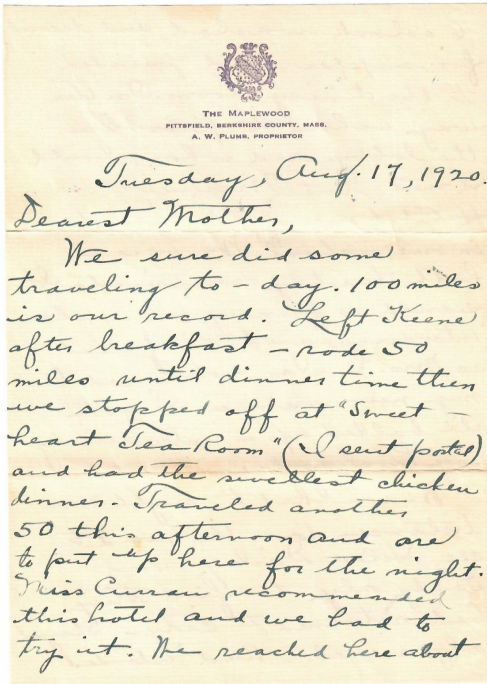 THE MAPLEWOOD
PITTSFIELD, BERKSHIRE COUNTY, MASS.
A. W. PLUMB, PROPRIETOR
Tuesday, Aug. 17, 1920.
Dearest Mother,
We sure did some
traveling to-day. 100 miles
is our record. Left Keene
after breakfast - rode 50
miles until dinner time then
we stopped off at "Sweet-
heart Tea Room" (I sent postal)
and had the swellest chicken
dinner. Traveled another
50 this afternoon and are
to put up here for the night.
Miss Curran recommended
this hotel and we had to
try it. We reached here about